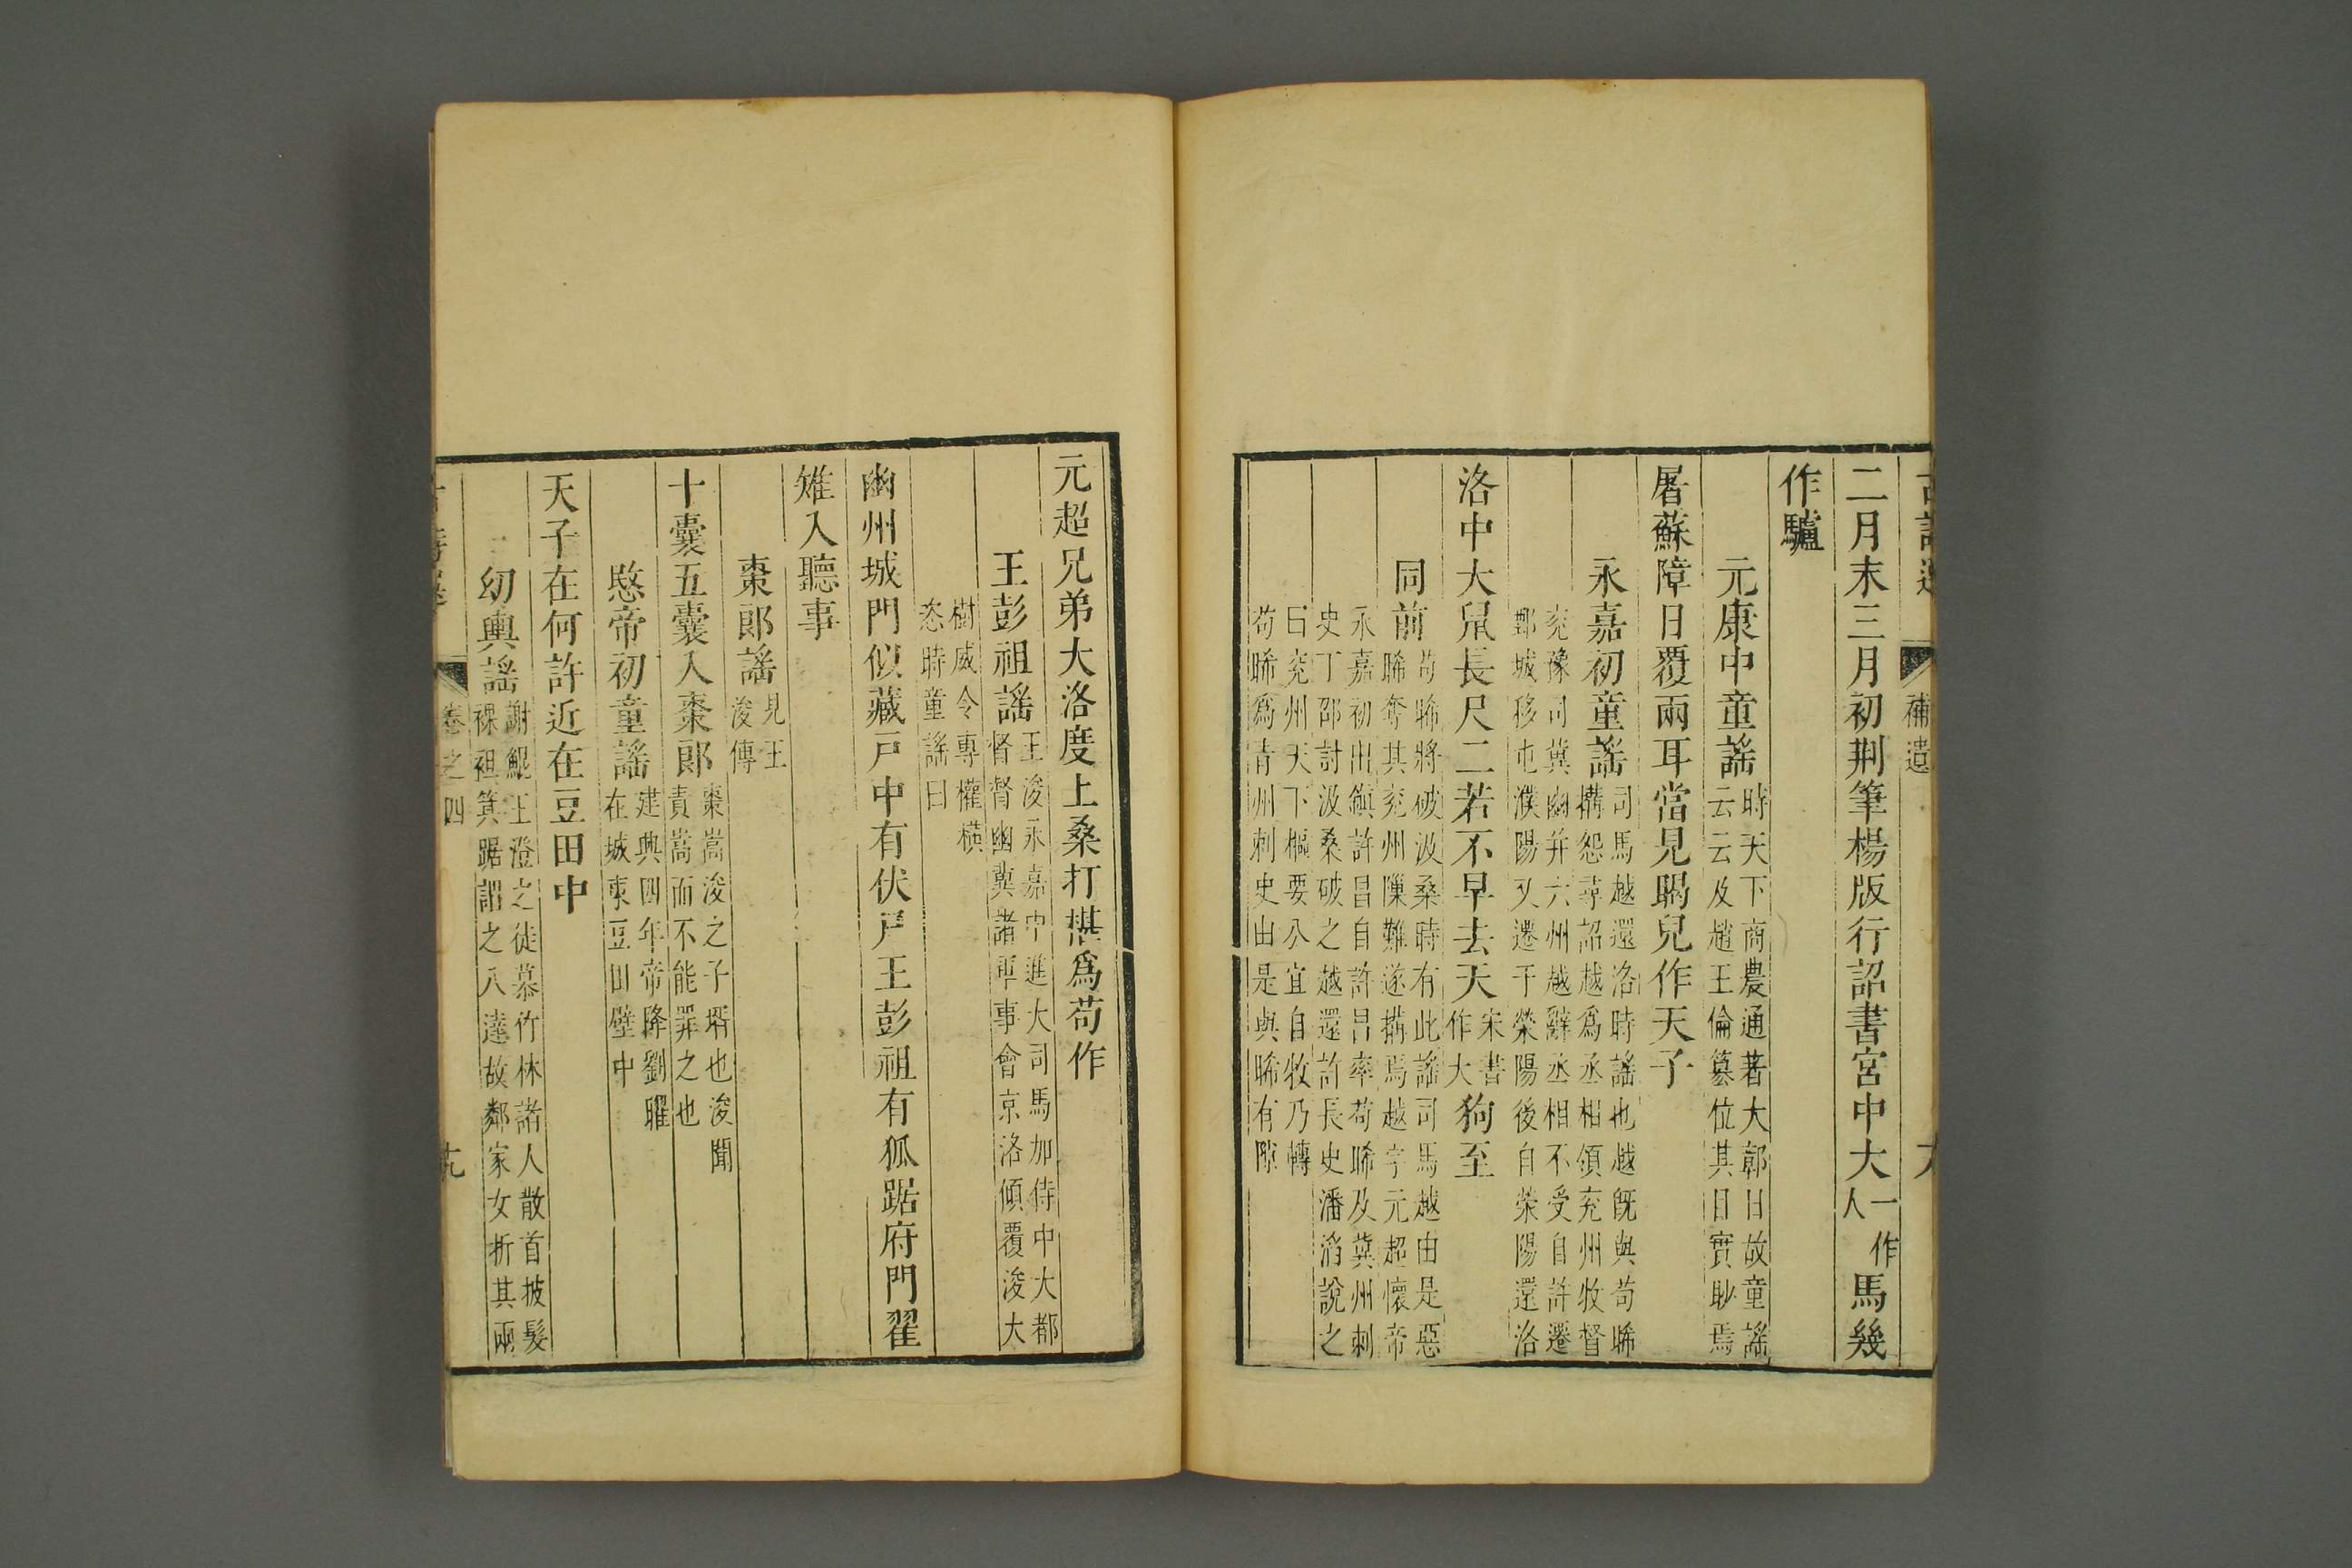 補遺
二月末三月初荆筆楊版行詔書宫中大一作人馬幾
作驢
元康中童謡時天下商農通著大鄣日故童謡
云云及趙王倫簒位其目實眇焉
屠蘇障日覆兩耳當見瞎兒作天子
永嘉初童謡司馬越還洛時謡也越旣與苟晞
搆怨尋詔越爲丞相領兖州牧督
兖豫司冀幽并六州越辭丞相不受自許遷
鄄城移屯濮陽又遷于榮陽後自榮陽還洛
洛中大鼠長尺二若不早去天宋書作大狗至
同前苟晞將破汲桑時有此謡司馬越由是惡
晞奪其兖州隟難遂搆焉越字元超懷帝
永嘉初出鎮許昌自許昌率苟晞及冀州刺
史丁邵討汲桑破之越還許長史潘滔說之
曰兖州天下樞要公宜自牧乃轉
苟晞爲青州刺史由是與晞有隙
元超兄弟大洛度上桑打椹爲苟作
王彭祖謡王浚永嘉中進大司馬加侍中大都
督督幽冀諸軍事會京洛傾覆浚大
樹威令專權橫
恣時童謡曰
幽州城門似藏戸中有伏尸王彭祖有狐踞府門翟
雉入聽事
棗郎謡見王
浚傳
十囊五囊入棗郎棗嵩浚之子壻也浚聞
責嵩而不能罪之也
愍帝初童謡建興四年帝降劉曜
在城東豆田壁中
天子在何許近在豆田中
幼輿謡謝鯤王澄之徒慕竹林諸人散首披髮
裸袒箕踞謂之八達故鄰家女折其兩
卷之四